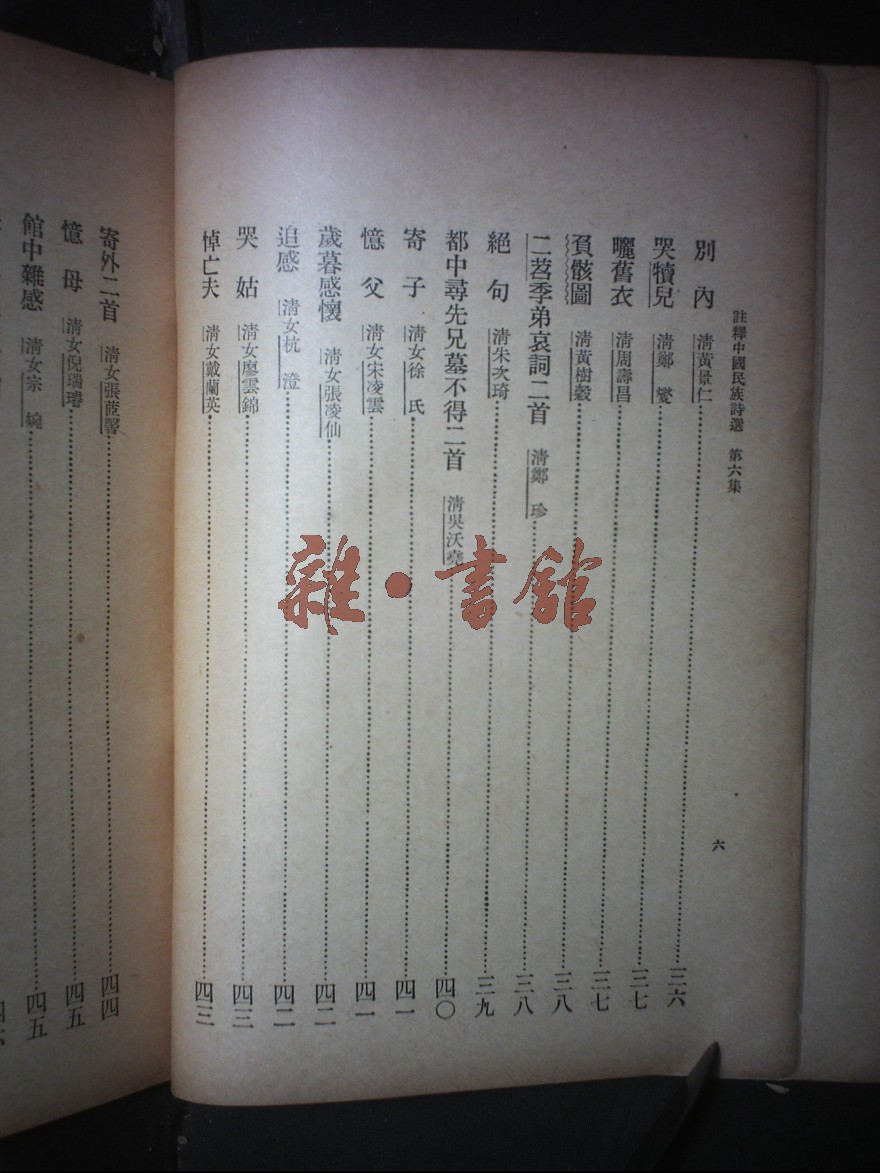 註釋中國民族詩選 第六集
六
別內 清黃景仁 三六
哭犢兒 清鄭燮 三七
曬舊衣 清周壽昌 三七
負骸圖 清黃樹穀 三八
二苕季弟哀詞二首 清鄭珍 三八
絕句 清朱次琦 三九
都中尋先兄墓不得二首 清吳沃堯 四〇
寄子 清女徐氏 四一
憶父 清女宋凌雲 四一
歲暮感懷 清女張凌仙 四二
追感 清女杭澄 四二
哭姑 清女廖雲錦 四三
悼亡夫 清女戴蘭英 四三
寄外二首 清女張茝馨 四四
憶母 清女倪瑞璿 四五
館中雜感 清女宗婉 四五
雜·書館